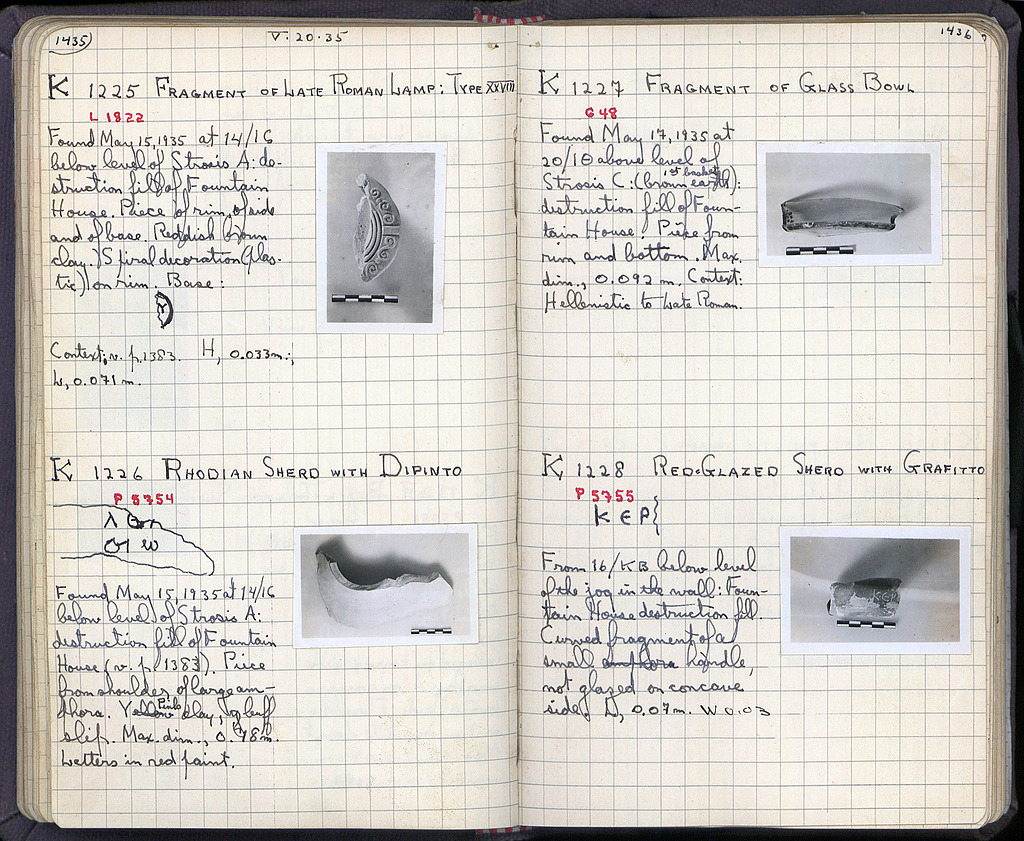 1435
V. 20. 35
K 1225 FRAGMENT OF LATE ROMAN LAMP: TYPE XXVIII
L 1822
Found May 15, 1935 at 14/16
below level of Strosis A: de-
struction fill of Fountain
House. Piece of rim, of side
and of base. Reddish brown
clay. Spiral decoration (plas-
tic) on rim. Base:
Context: v. p. 1383. H, 0.033m.;
L, 0.071 m.
K 1226 RHODIAN SHERD WITH DIPINTO
P 5754
Found May 15, 1935 at 14/16
below level of Strosis A:
destruction fill of Fountain
House (v. p. 1383). Piece
from shoulder of large am-
phora. Yellow Pink clay, buff
slip. Max. dim., 0.
Letters in red paint.
1436
K 1227 FRAGMENT OF GLASS BOWL
G 48
Found May 17, 1935 at
20/IΘ above level of
Strosis C: (brown earth): 1st basket
destruction fill of Foun-
tain House. Piece from
rim and bottom. Max.
dim., 0.092 m. Context:
Hellenistic to Late Roman.
K 1228 RED-GLAZED SHERD WITH GRAFITTO
P 5755
Κ Ε Ρ {
From 16/KB below level
of the jog in the wall: Foun-
tain House destruction fill.
Curved fragment of a
small amphora handle,
not glazed on concave
side. L, 0.07m. W 0.03